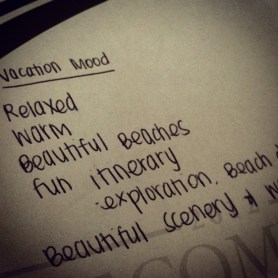 Vacation Mood
Relaxed
Warm
Beautiful Beaches
fun itinerary
- exploration, Beach
Beautiful scenery &
COM